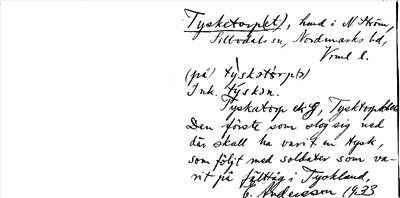 Tysketorp(et), hmd i N Ström,
Sillbodals sn, Nordmarks hd,
Vrml l.
(på) tyskatorp(ə)
Ink. tyskən.
Tyskatorp ek G, Tysktorp
Den förste som slog sig ned
där skall ha varit en tysk,
som följt med soldater som va-
rit på fälttåg i Tyskland,
E. Andersson 1933